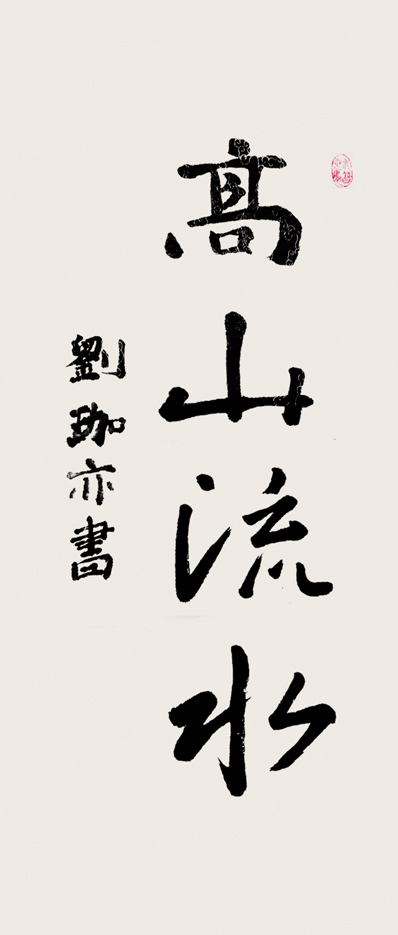 高山流水
劉珈亦書